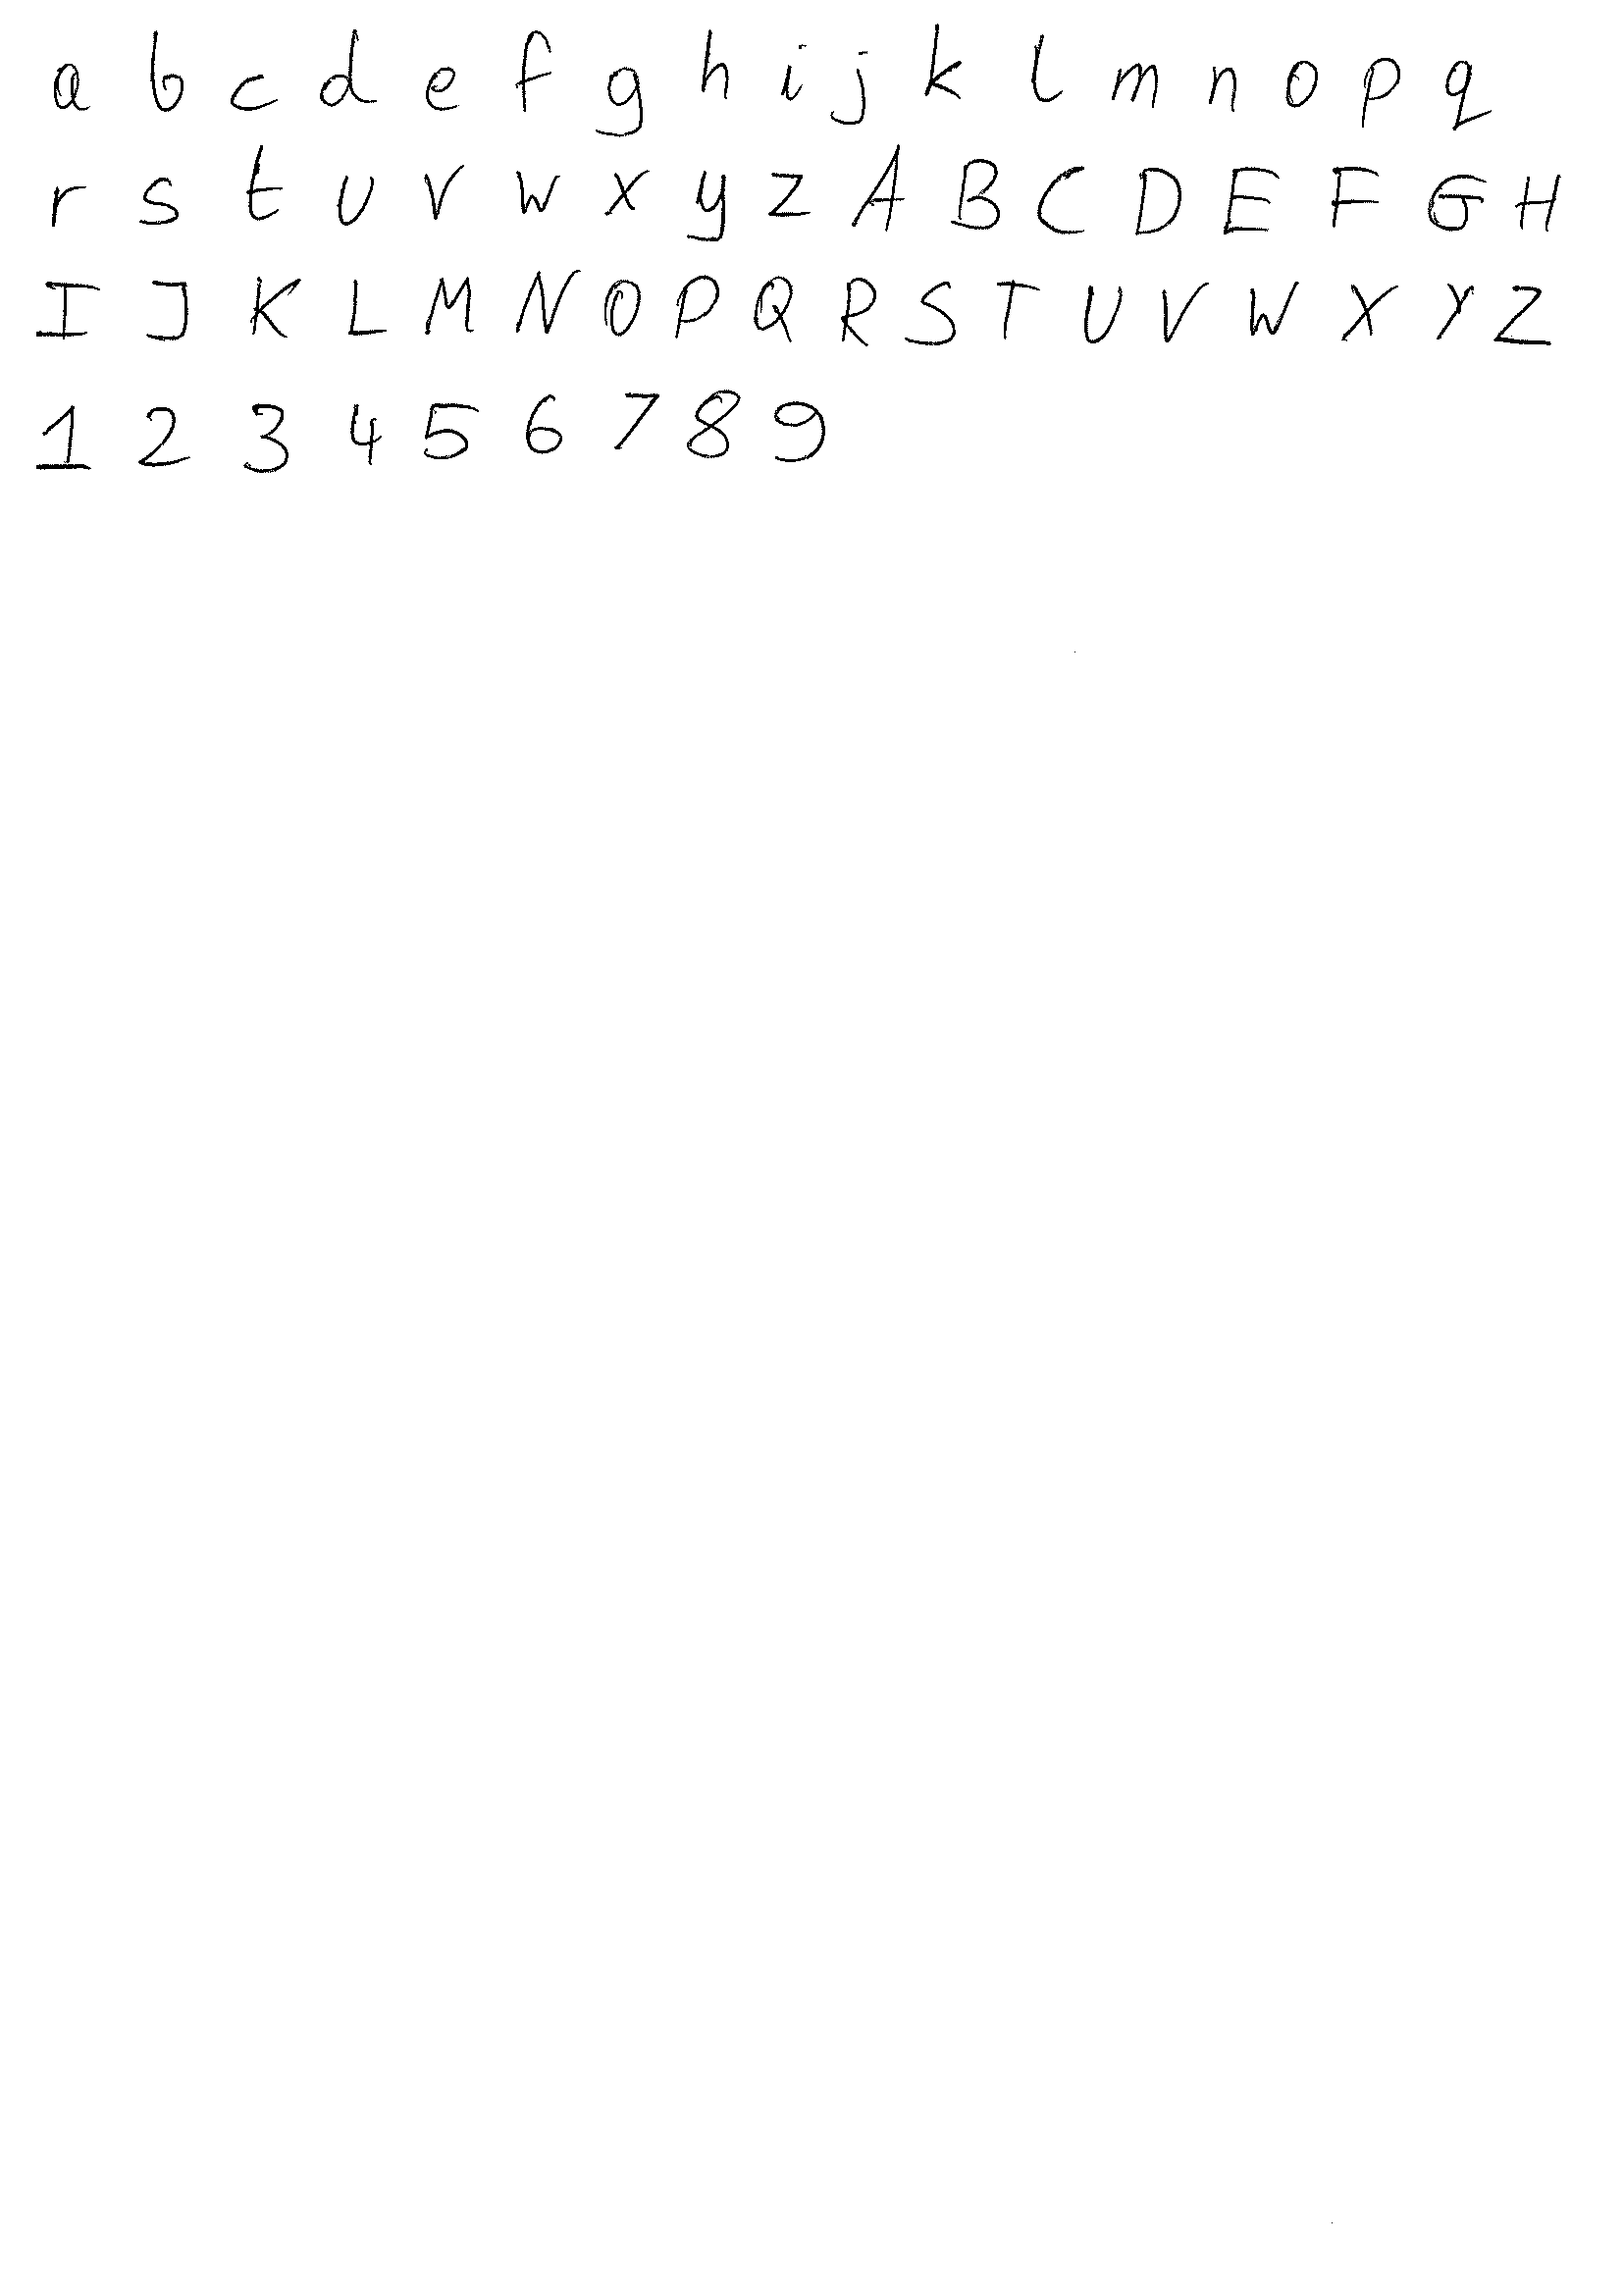 a b c d e f g h i j k l m n o p q
r s t u v w x y z A B C D E F G H
I J K L M N O P Q R S T U V W X Y Z
1 2 3 4 5 6 7 8 9